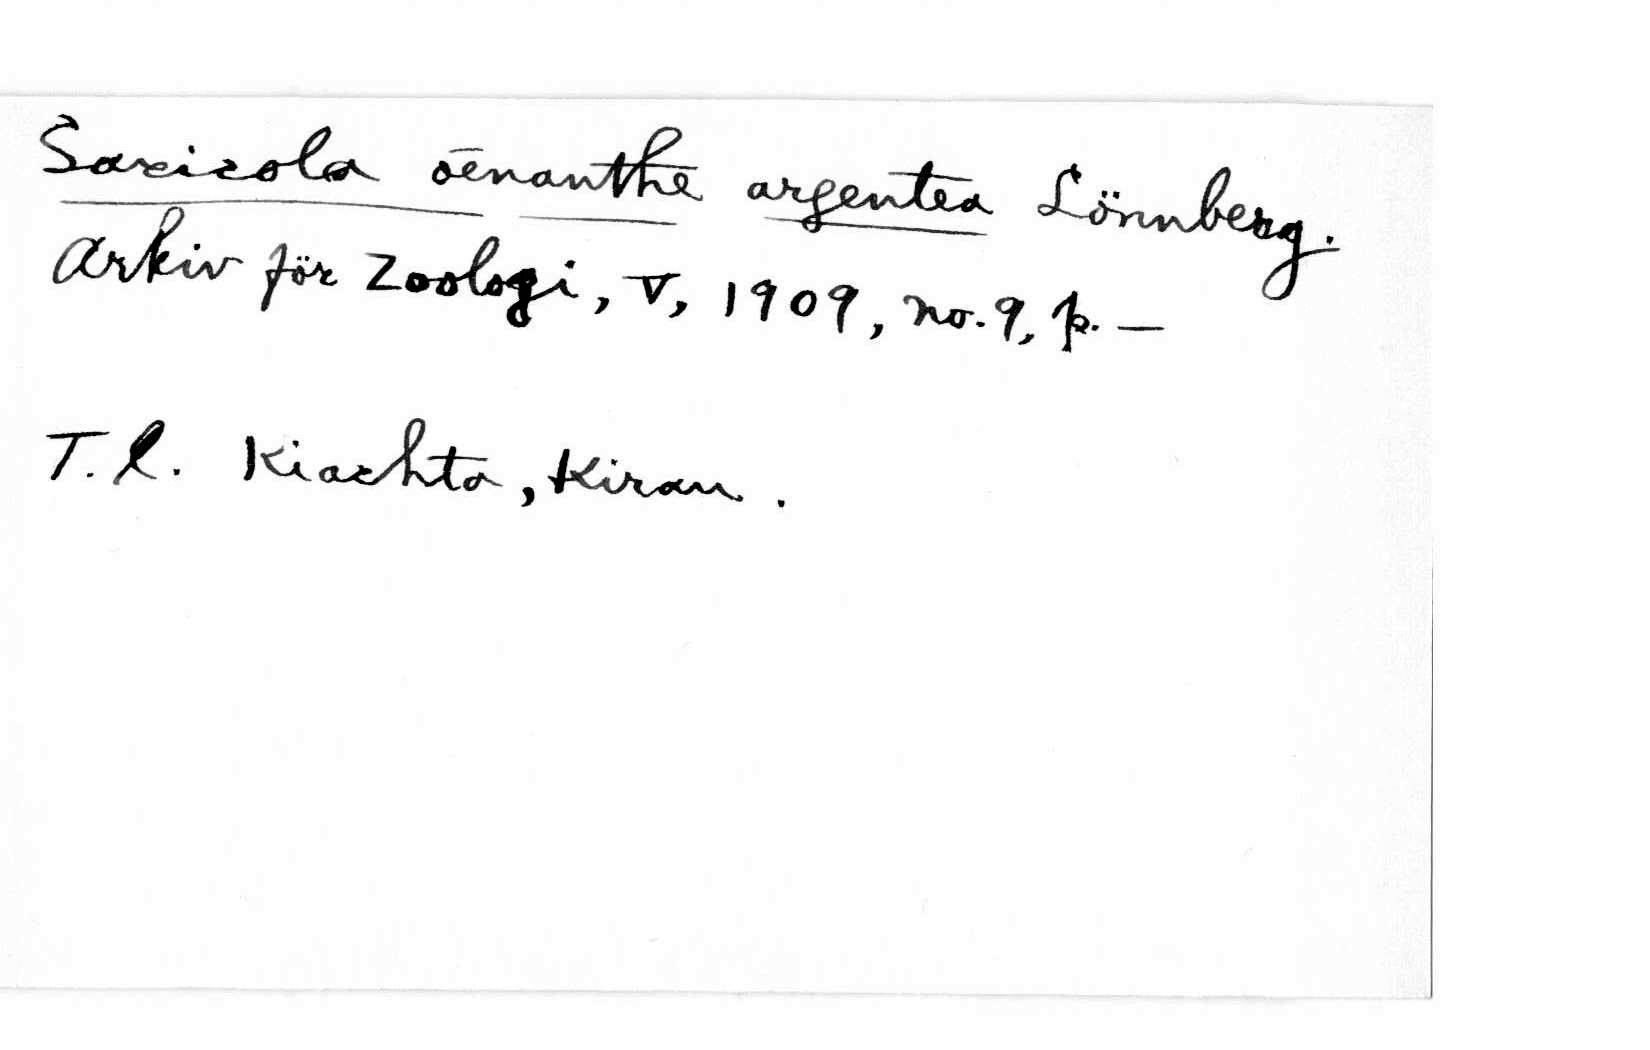 Saxicola oenanthe argentea Lönnberg.
Arkiv för Zoologi, V, 1909, no. 9, p. —
T. l. Kiachta, Kiran.